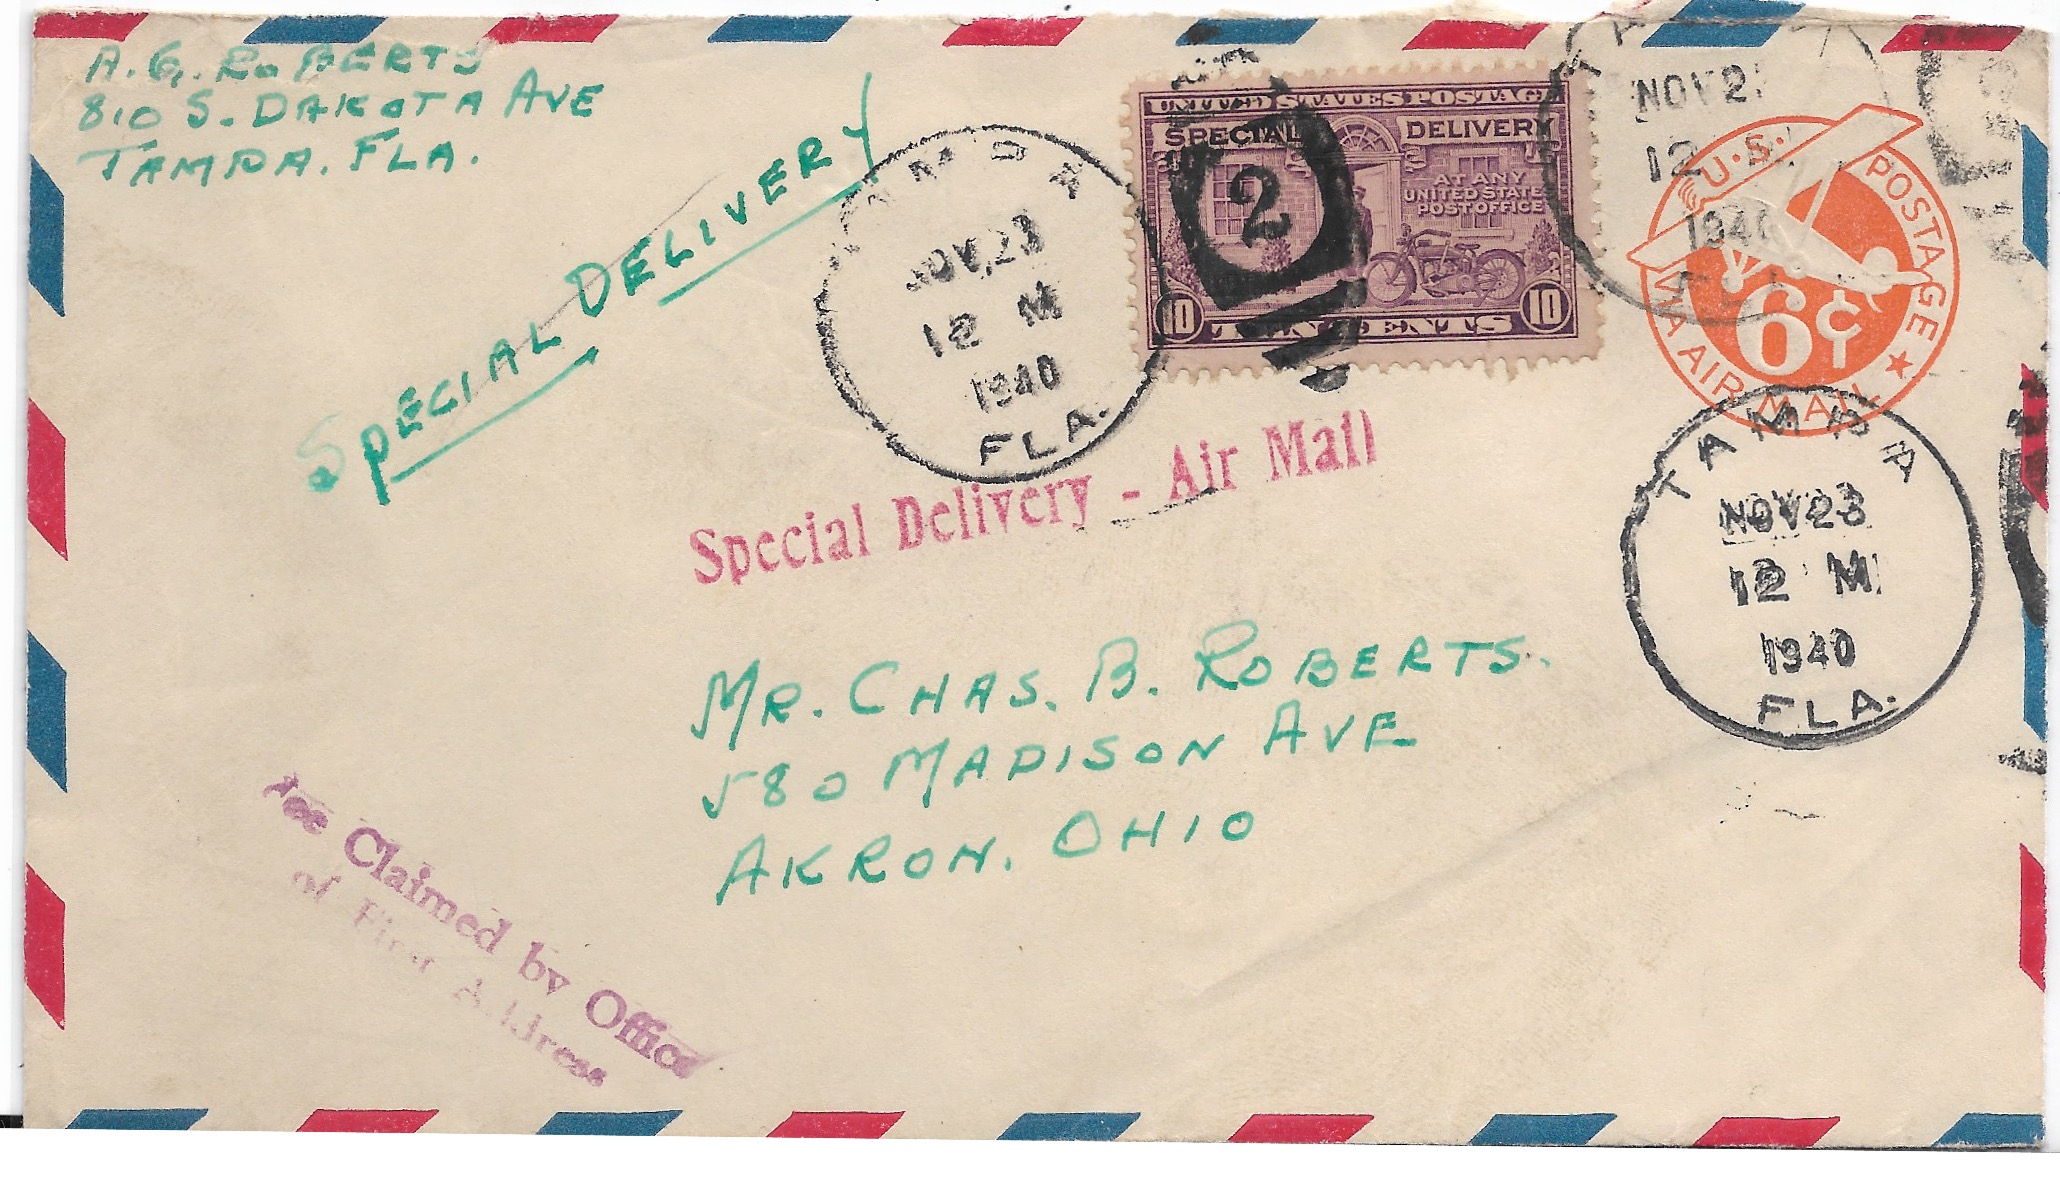 A. G. ROBERTS
810 S. DAKOTA AVE
TAMPA. FLA.
SPECIAL DELIVERY
TAMPA
NOV 23
12 M
1940
FLA.
UNITED STATES POSTAGE
SPECIAL DELIVERY
AT ANY
UNITED STATES
POST OFFICE
10 TEN CENTS 10
2
NOV 2
12
1940
FLA
U.S. POSTAGE
6¢
VIA AIR MAIL
TAMPA
NOV 23
12 M
1940
FLA.
Special Delivery - Air Mail
MR. CHAS. B. ROBERTS.
580 MADISON AVE
AKRON. OHIO
Fee Claimed by Office
of First Address